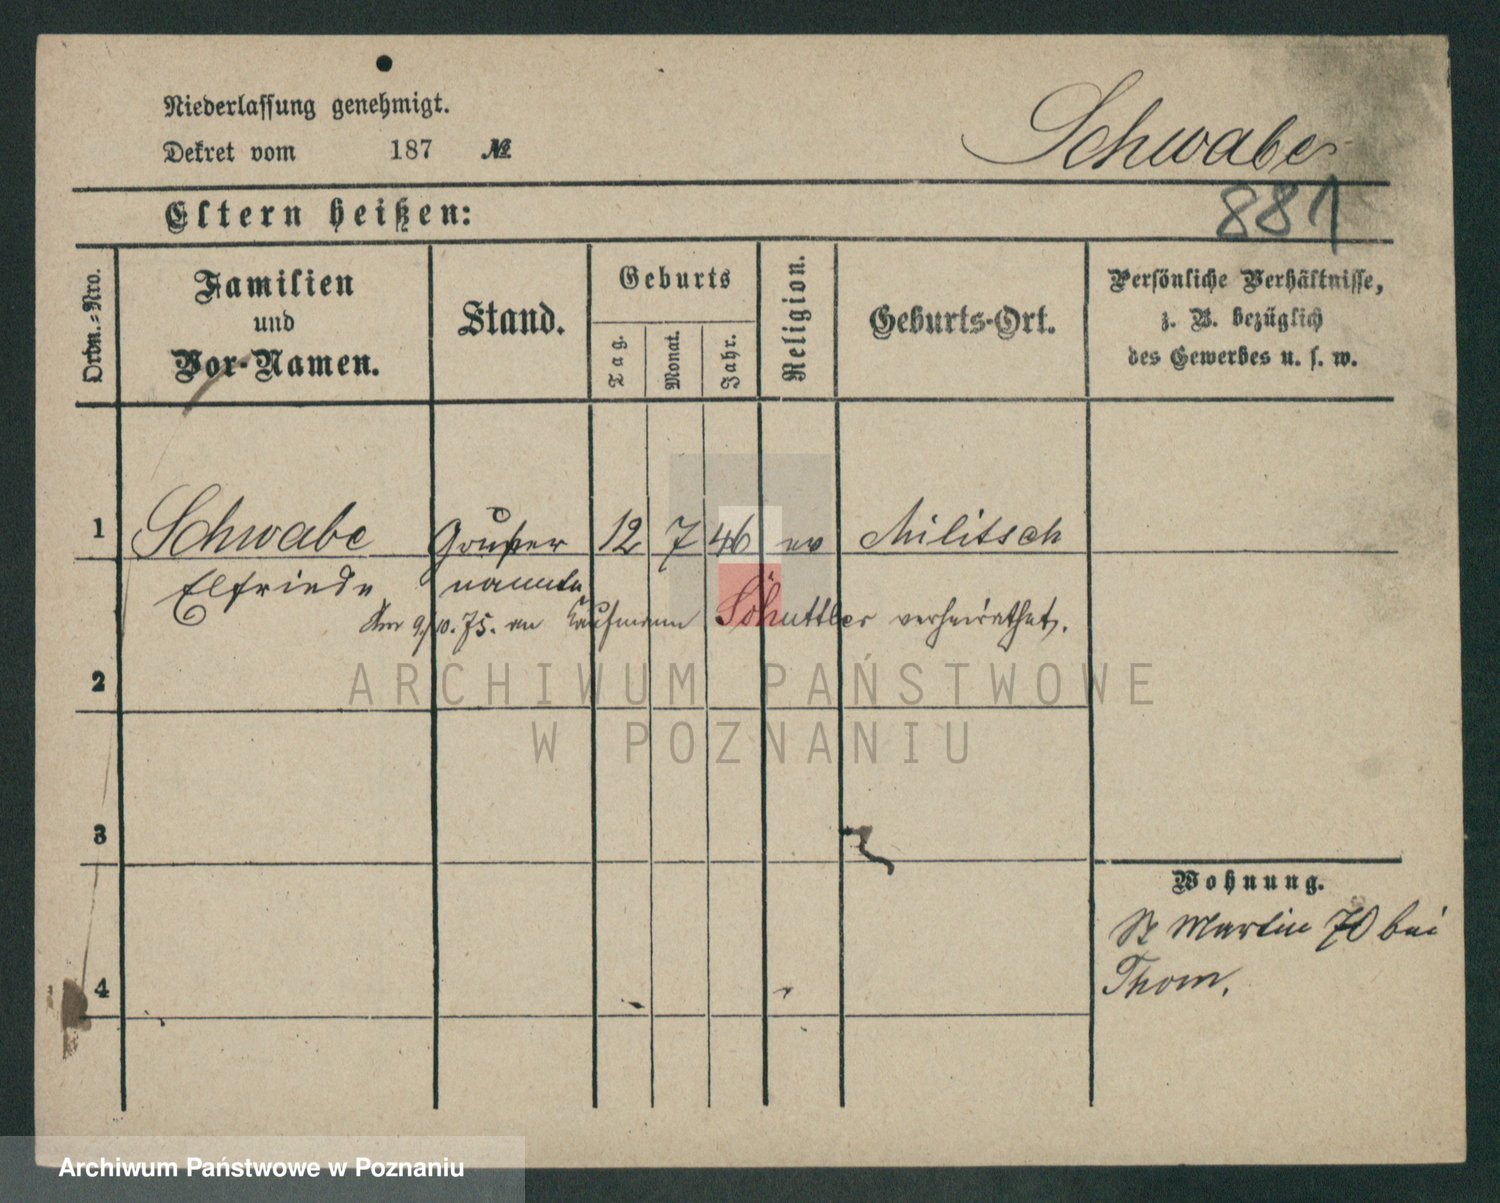 Niederlassung genehmigt.
Dekret vom 187 №
Schwabe
881
Eltern heißen:
Ordn.-Nro.
Familien
und
Vor-Namen.
Stand.
Geburts
Tag.
Monat.
Jahr.
Religion.
Geburts-Ort.
Persönliche Verhältnisse,
z. B. bezüglich
des Gewerbes u. s. w.
1 Schwabe Gouver 12 7 46 ev Militsch
Elfriede nannte
9/10.75. an Kaufmann verheirathet.
2
3
4
Wohnung.
St Martin 70 bei
Thom.
ARCHIWUM PAŃSTWOWE
W POZNANIU
Archiwum Państwowe w Poznaniu